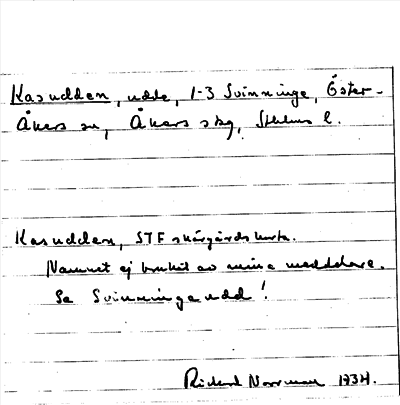 Kasudden, udde, 1-3 Svinninge, Öster-
Åkers sn, Åkers skg, Sthlms l.
Kasudden, STF skärgårdskarta.
Namnet ej brukat av mina meddelare.
Se Svinningeudd!
Rickard Norrman 1934.